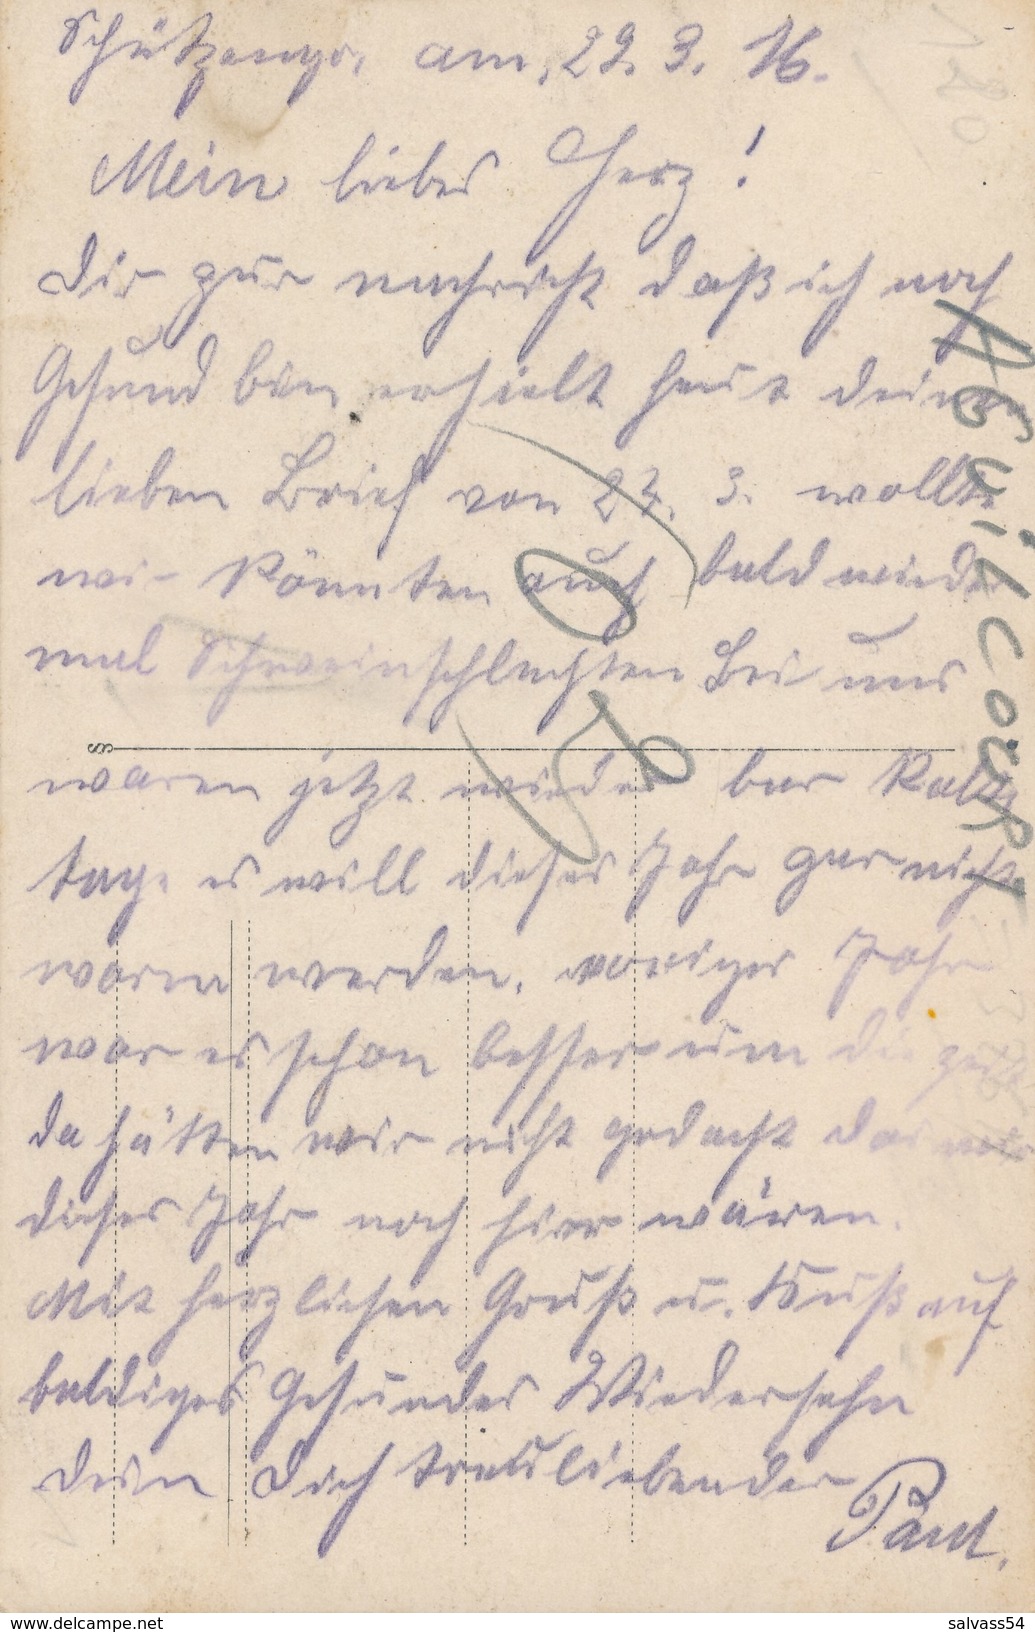 Schützengr. am, 29. 3. 16.
Mein liebes Herz!
Dir zur nachricht daß ich noch
Gesund bin erhielt heut deinen
lieben Brief von 23. 3. wollte
wir könnten auch bald wieder
mal Schweinschlachten Bei uns
waren jetzt wieder par Kalte
tage es will dieses Jahr gar nicht
warm werden. voriges Jahr
war es schon besser um die zeit
da hätten wir nicht gedacht das wir
dieses Jahr noch hier wären.
Mit herzlichen Gruß u. Kuß auf
baldiges Gesundes Wiedersehn
dein Dich treuliebender
Paul.
Aguilcourt
delcampe.net
salvass54